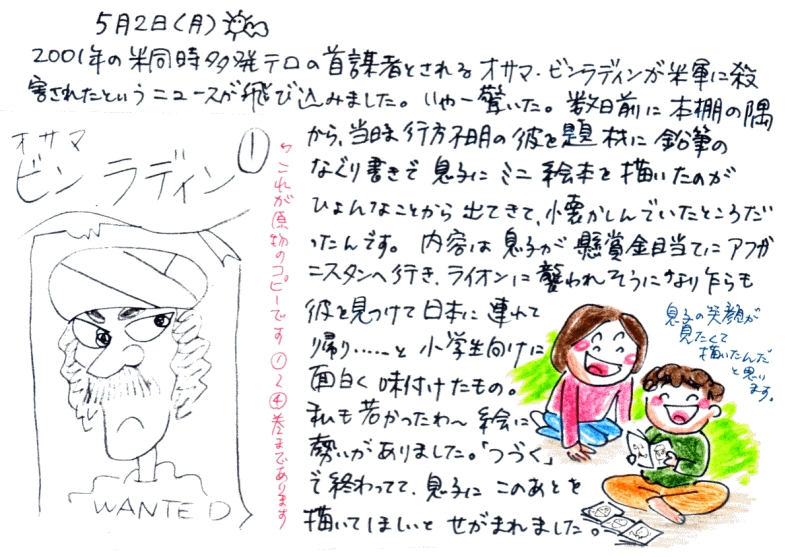 5月2日(月)
2001年の米同時多発テロの首謀者とされるオサマ・ビンラディンが米軍に殺
害されたというニュースが飛び込みました。いやー驚いた。数日前に本棚の隅
から、当時行方不明の彼を題材に鉛筆の
なぐり書きで息子にミニ絵本を描いたのが
ひょんなことから出てきて、懐かしんでいたところだ
ったんです。内容は息子が懸賞金目当てにアフガ
ニスタンへ行き、ライオンに襲われそうになり乍らも
彼を見つけて日本に連れて
帰り……と小学生向けに
面白く味付けたもの。
私も若かったわ〜絵に
勢いがありました。「つづく」
で終わってて、息子にこのあとを
描いてほしいとせがまれました。
オサマ
ビンラディン
①
WANTED
←これが原物のコピーです ①〜④巻まであります
息子の笑顔が
見たくて
描いたんだ
と思い
ます。